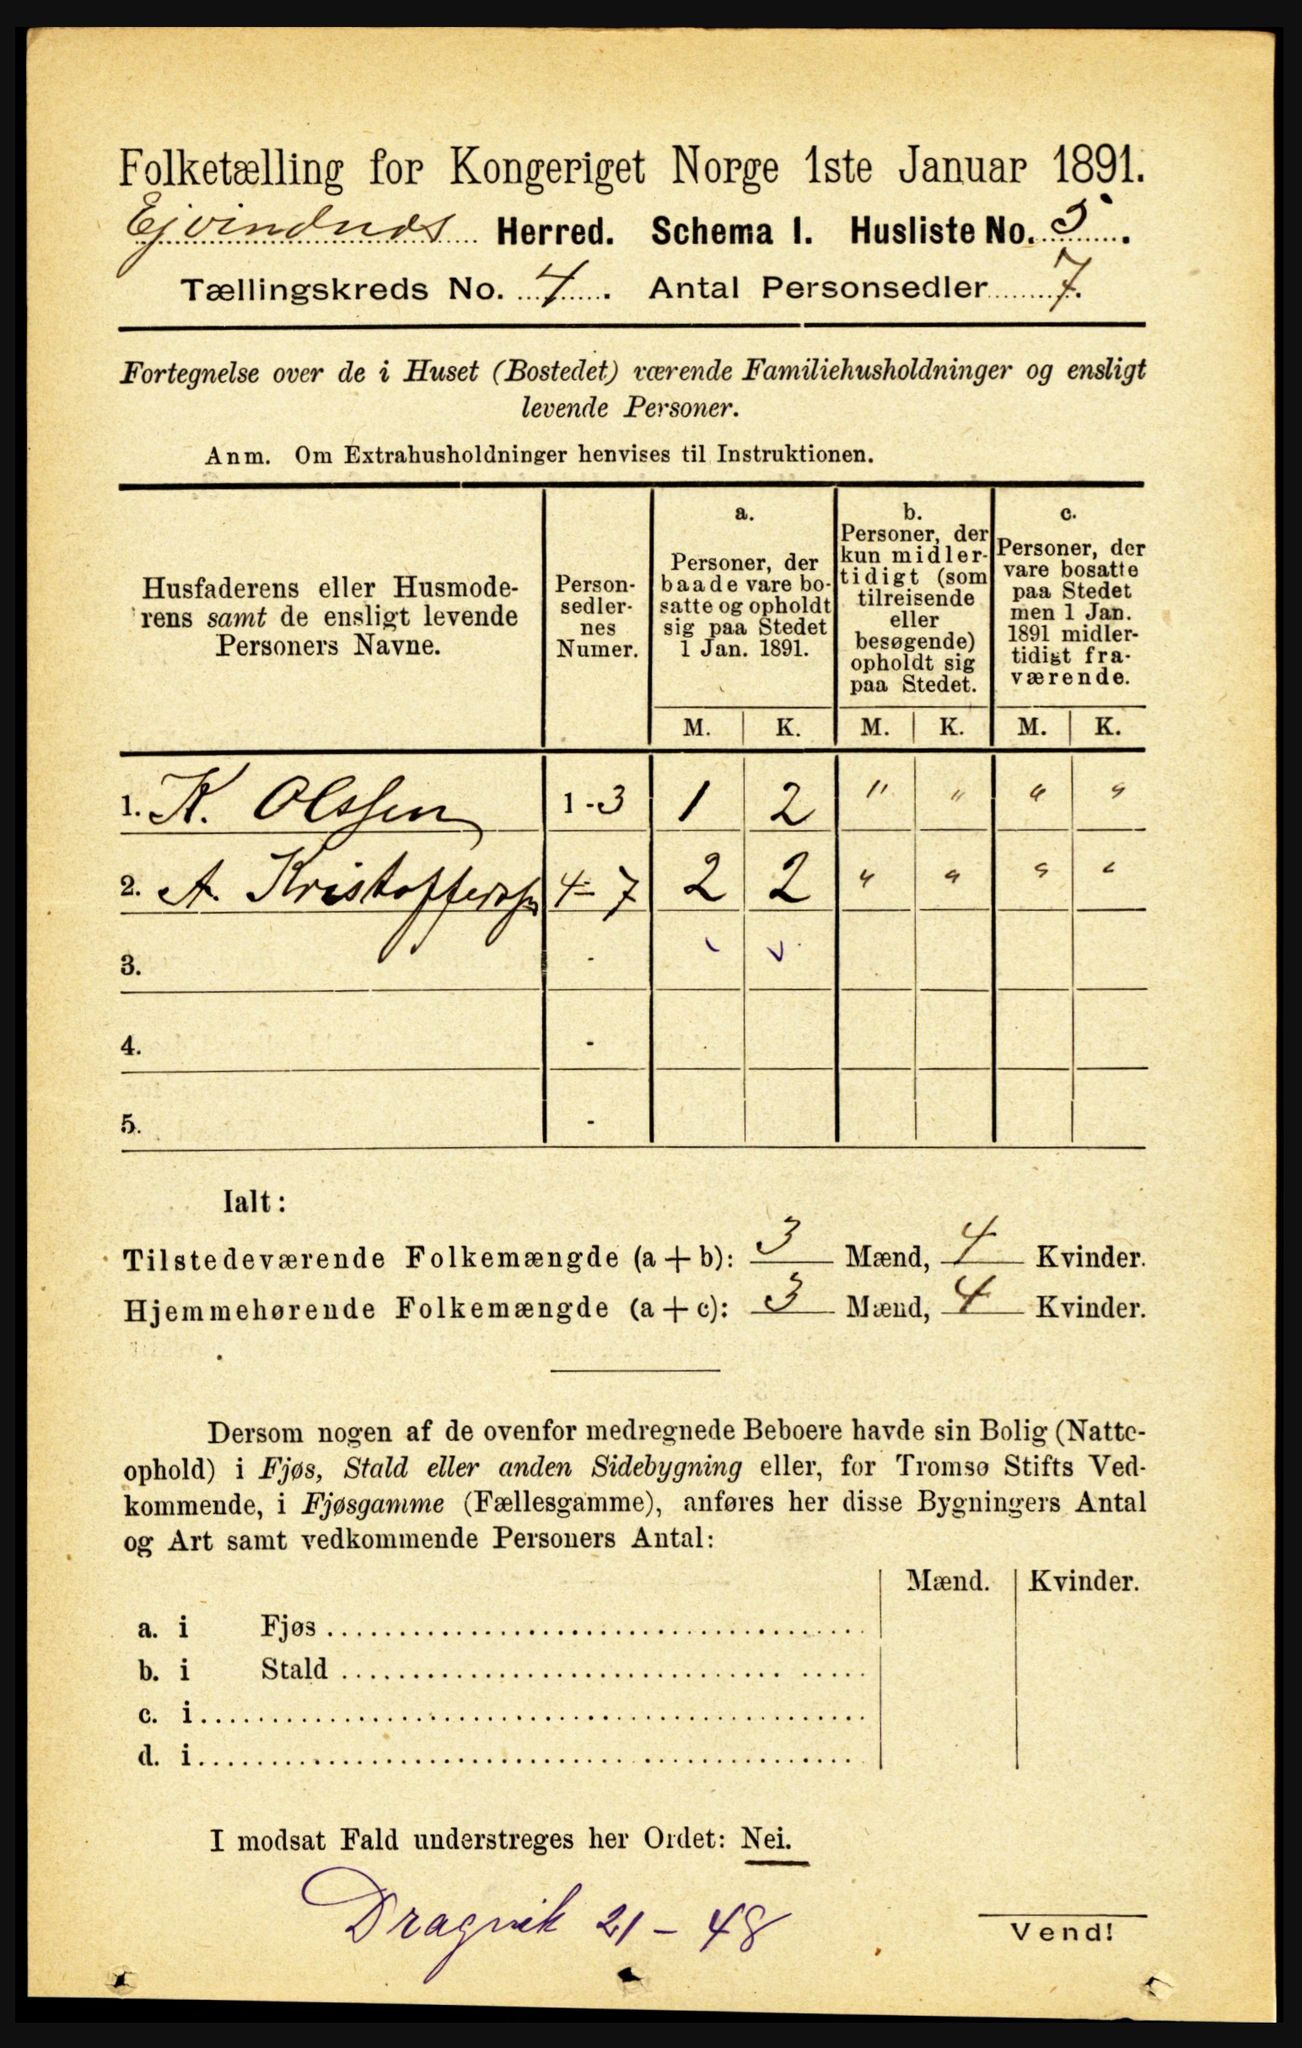 Folketælling for Kongeriget Norge 1ste Januar 1891.
Ejvindnæs Herred. Schema I. Husliste No. 5.
Tællingskreds No. 4. Antal Personsedler 7.
Fortegnelse over de i Huset (Bostedet) værende Familiehusholdninger og ensligt
levende Personer.
Anm. Om Extrahusholdninger henvises til Instruktionen.
Husfaderens eller Husmode-
rens samt de ensligt levende
Personers Navne.
Person-
sedler-
nes
Numer.
a.
Personer, der
baade vare bo-
satte og opholdt
sig paa Stedet
1 Jan. 1891.
b.
Personer, der
kun midler-
tidigt (som
tilreisende
eller
besøgende)
opholdt sig
paa Stedet.
c.
Personer, der
vare bosatte
paa Stedet
men 1 Jan.
1891 midler-
tidigt fra-
værende.
M. K. M. K. M. K.
1. K. Olssen 1-3 1 2 " " " "
2. A. Kristofferssen 4-7 2 2 " " " "
3. -
4. -
5. -
Ialt:
Tilstedeværende Folkemængde (a + b): 3 Mænd, 4 Kvinder.
Hjemmehørende Folkemængde (a + c): 3 Mænd, 4 Kvinder.
Dersom nogen af de ovenfor medregnede Beboere havde sin Bolig (Natte-
ophold) i Fjøs, Stald eller anden Sidebygning eller, for Tromsø Stifts Ved-
kommende, i Fjøsgamme (Fællesgamme), anføres her disse Bygningers Antal
og Art samt vedkommende Personers Antal:
Mænd. Kvinder.
a. i Fjøs
b. i Stald
c. i
d. i
I modsat Fald understreges her Ordet: Nei.
Dragvik 21-48
Vend!